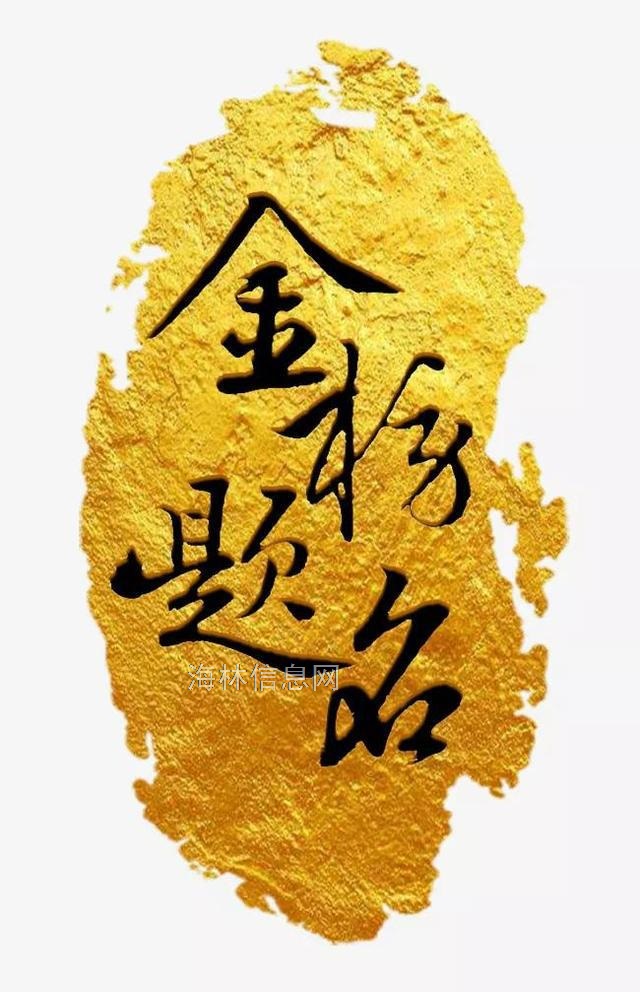 金榜
题名
海林信息网